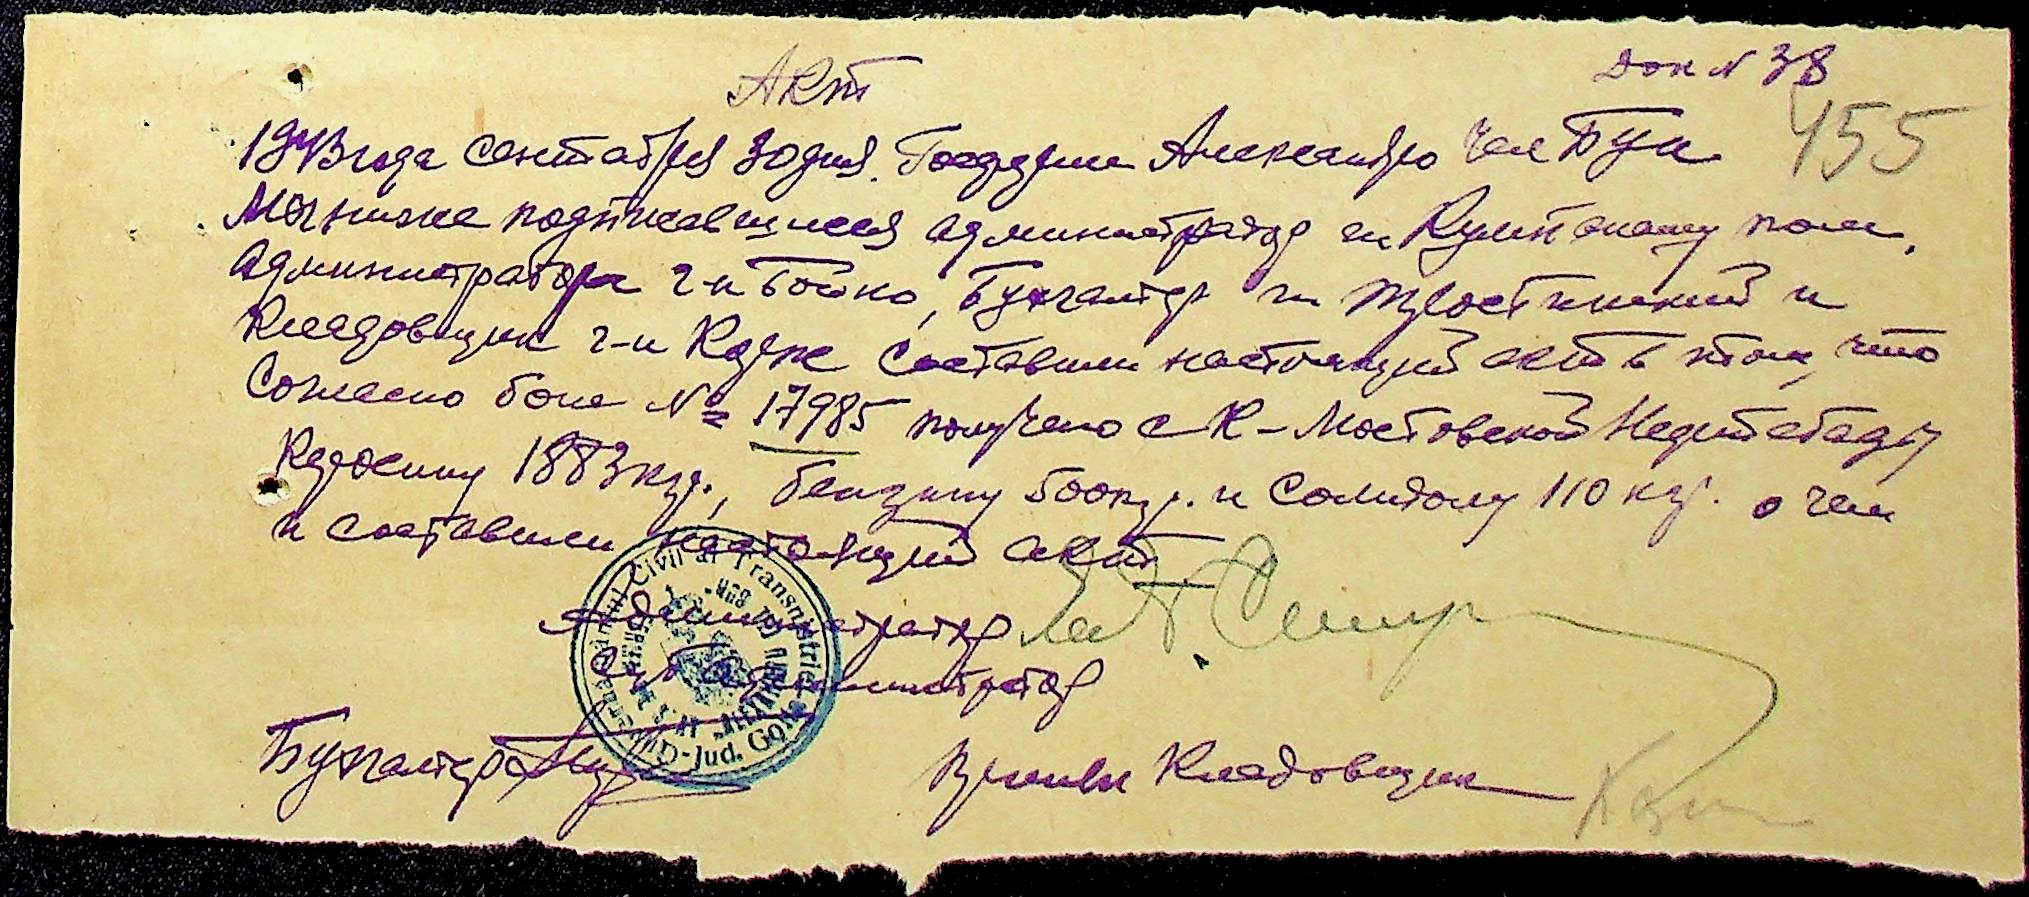 Акт
Док N 38
455
1943 года сентабря 30 дня. Господарие Александро чел Бун
Мы ниже подписавшиеся администратор г-н пом.
администратора г-н Бойко, Бухгалтер г-н Тростинский и
Кладовщик г-н составили настоящий акт в том, что
Согласно бона № 17985 получено с К-Мостовской Нефтебазы
Керосину 1883 кгр., бензину 500 кгр. и Солидолу 110 кгр. о чем
и составили настоящий акт
Администратор
Субадминистратор
Бухгалтер
Кладовщик
Guvernământul Civil al Transnistriei
Jud. Golta